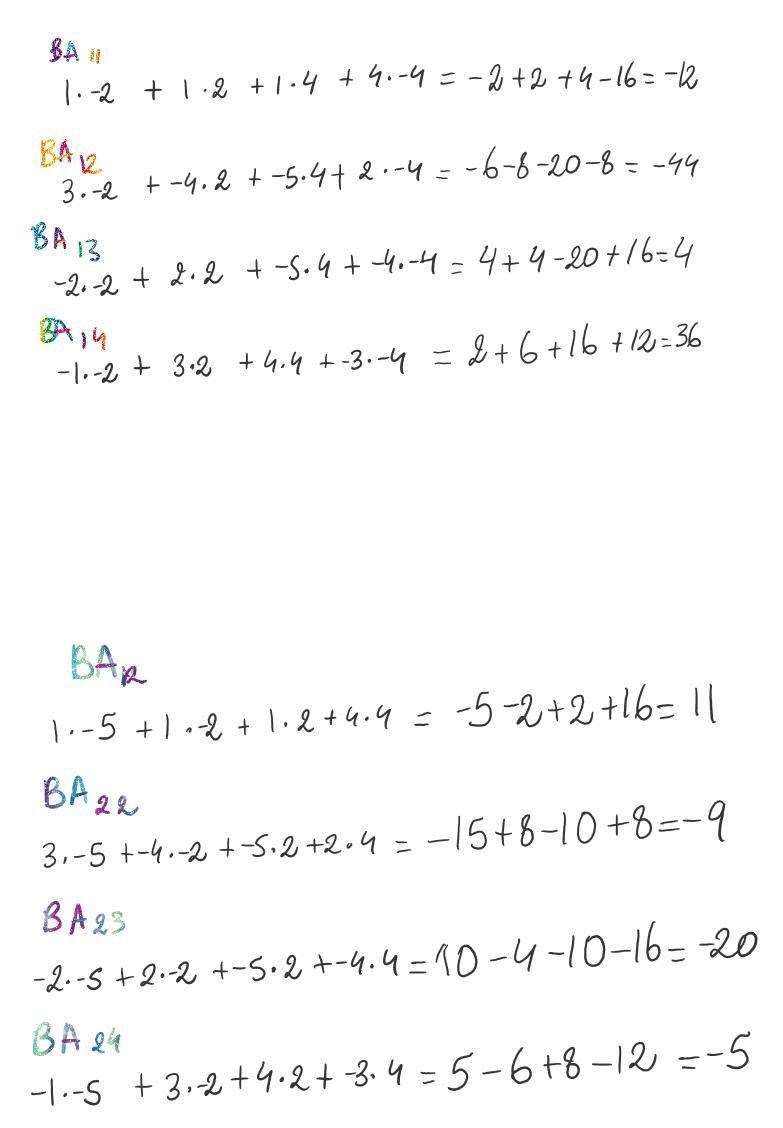 BA 11
1·-2 + 1·2 + 1·4 + 4·-4 = -2+2+4-16=-12
BA 12
3·-2 + -4·2 + -5·4+ 2·-4 = -6-8-20-8 = -44
BA 13
-2·-2 + 2·2 + -5·4 + -4·-4 = 4+4-20+16=4
BA 14
-1·-2 + 3·2 + 4·4 + -3·-4 = 2+6+16+12=36
BA 12
1·-5 +1·-2 + 1·2+4·4 = -5-2+2+16= 11
BA 22
3·-5 +-4·-2 +-5·2+2·4 = -15+8-10+8=-9
BA 23
-2·-5 +2·-2 +-5·2 +-4·4=10-4-10-16= -20
BA 24
-1·-5 +3·-2+4·2+ -3·4 =5-6+8-12 =-5